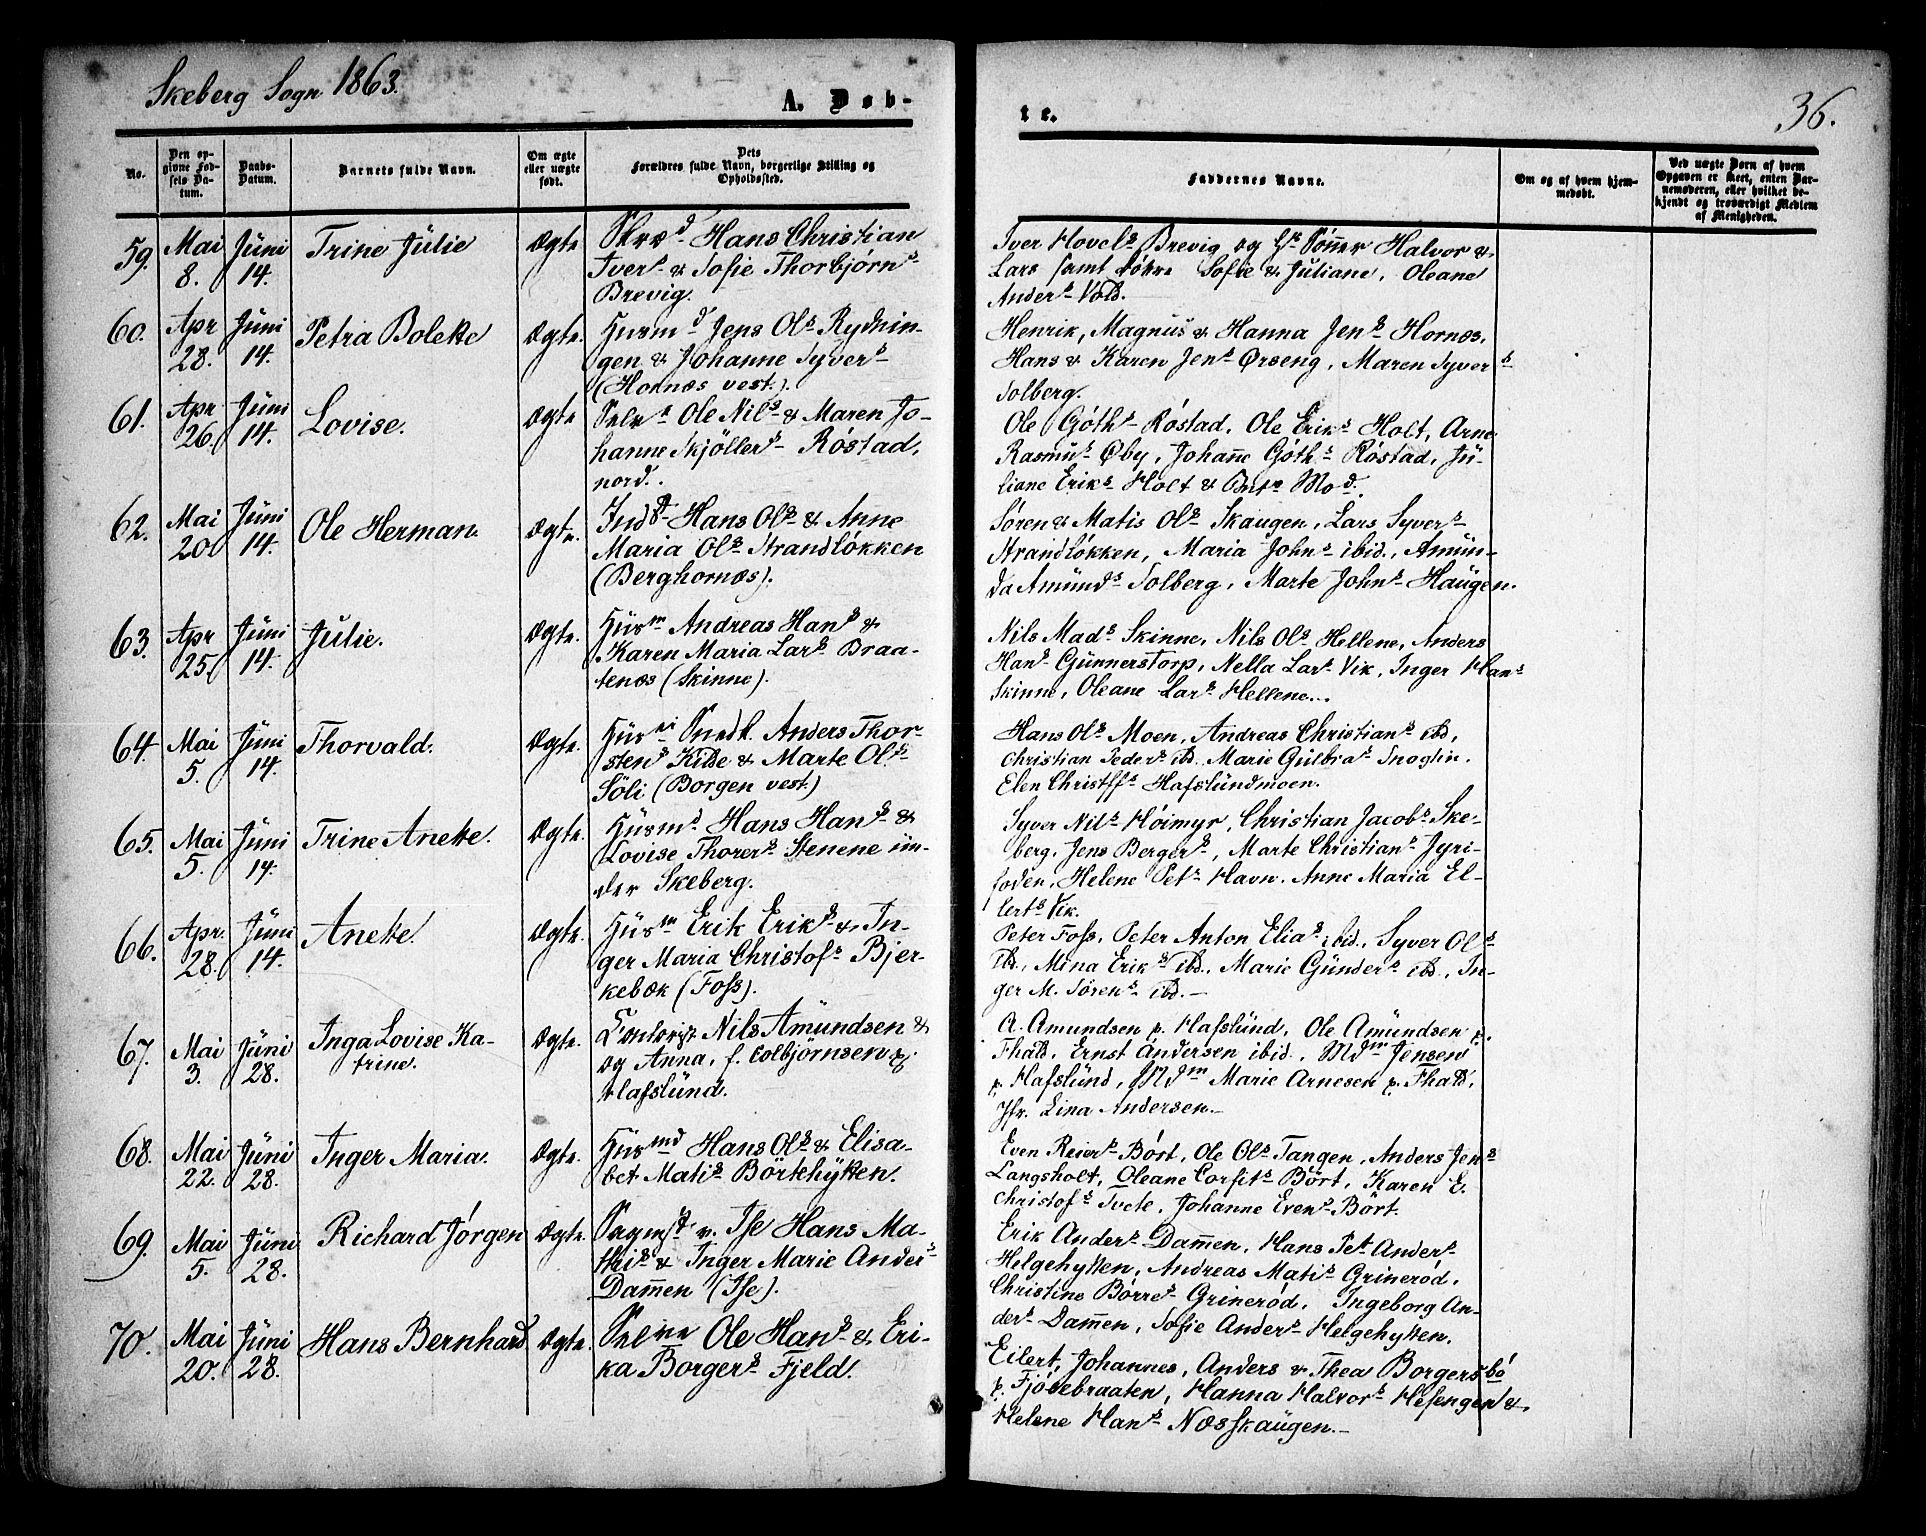 Skeberg Sogn 1863.
A. Døb-
te.
36.
No.
Den op-
givne Fød-
sels Da-
tum.
Daabs-
Datum.
Barnets fulde Navn.
Om ægte
eller uægte
født.
Dets
Forældres fulde Navn, borgerlige Stilling og
Opholdssted.
Faddernes Navne.
Om og af hvem hjem-
medøbt.
Ved uægte Børn af hvem
Opgaven er skeet, enten Bar-
nemoderen, eller hvilket be-
kjendt og troværdigt Medlem
af Menigheden.
59. Mai 8. Juni 14. Trine Julie Ægte
Hans Christian
Ivers & Sofie Thorbjørns
Brevig.
Iver Hovels Brevig og Sønner Halvor &
Lars samt Døtre Sofie & Juliane, Oleane
Anders Vold.
60. Apr 28. Juni 14. Petra Bolette Ægte.
Husmd Jens Ols Rydnin-
gen & Johanne Syvers
(Hornæs vest.).
Henrik, Magnus & Hanna Jens Hornæs,
Hans & Karen Jens Ørseng, Maren Syvers
Solberg.
61. Apr 26. Juni 14. Lovise. Ægte
Selve Ole Nils & Maren Jo-
hanne Skjöllers Röstad,
nord.
Ole Góths Röstad, Ole Eriks Holt, Arne
Rasmus Øby, Johanne Góths Röstad, Ju-
liane Eriks Holt &
62. Mai 20. Juni 14. Ole Herman. Ægte.
Inds Hans Ols & Anne
Maria Ols Strandløkken
(Berghornæs).
Søren & Matis Ols Skaugen, Lars Syvers
Strandløkken, Maria Johns ibid., Amun-
da Amunds Solberg, Marte Johns Haugen.
63. Apr 25. Juni 14. Julie. Ægte.
Husm Andreas Hans &
Karen Maria Lars Braa-
tenæs (Skinne).
Nils Mads Skinne, Nils Ols Hellene, Anders
Hans Gunnerstorp, Nella Lars Vik, Inger Hans
Skinne, Oleane Lars Hellene.
64. Mai 5. Juni 14. Thorvald. Ægte.
Husm Snedk. Anders Thor-
stens Kilde & Marte Ols
Söli (Borgen vest.)
Hans Ols Moen, Andreas Christians ibd,
Christian Peders ibd. Marie Gulbrs
Elen Christffs Hafslundmoen.
65. Mai 5. Juni 14. Trine Anette. Ægte.
Husmd. Hans Hans &
Lovise Thorers Stenene un-
der Skeberg.
Syver Nils Høimyr, Christian Jacobs Ske-
berg, Jens Bergers, Marte Christians Jyri-
foden, Helene Pets Havn, Anne Maria El-
lerts Vik.
66. Apr. 28. Juni 14. Anette. Ægte.
Husm Erik Eriks & In-
ger Maria Christofs Bjer-
kebæk (Foss).
Peter Foss, Peter Anton Elias ibid., Syver Ols
ibd., Mina Eriks ibd., Marie Gunders ibd., In-
ger M. Sørens ibd.
67. Mai 3. Juni 28. Inga Lovise Ka-
trine. Ægte.
Contorist Nils Amundsen &
og Anna, f. Colbjörnsen p.
Hafslund.
A. Amundsen p. Hafslund, Ole Amundsen p.
Thald, Ernst Andersen ibid., Mdm Jensen
p. Hafslund, Mdm Marie Arnesen p. Thald,
Jfr. Lina Andersen.
68. Mai 22. Juni 28. Inger Maria. Ægte.
Husmd Hans Ols & Elisa-
bet Matis Börtehytten.
Even Reiers Bört, Ole Ols Tangen, Anders Jens
Langsholt, Oleane Corfits Bört, Karen E.
Christofs Tvete, Johanne Evens Bört.
69. Mai 5. Juni 28. Richard Jörgen Ægte.
v. Ise Hans Ma-
this & Inger Marie Anders
Dammen (Ise).
Erik Anders Dammen, Hans Pet. Anders
Helgehytten, Andreas Matis Grineröd,
Christine Börres Grineröd, Ingeborg An-
ders Dammen, Sofie Anders Helgehytten.
70. Mai 20. Juni 28. Hans Bernhard Ægte.
Ole Hans & Eri-
ka Borgers Fjeld.
Eilert, Johannes, Anders & Thea Borgers
p. Fjösebraaten, Hanna Halvors Hefengen &
Helene Hans Næsskaugen.